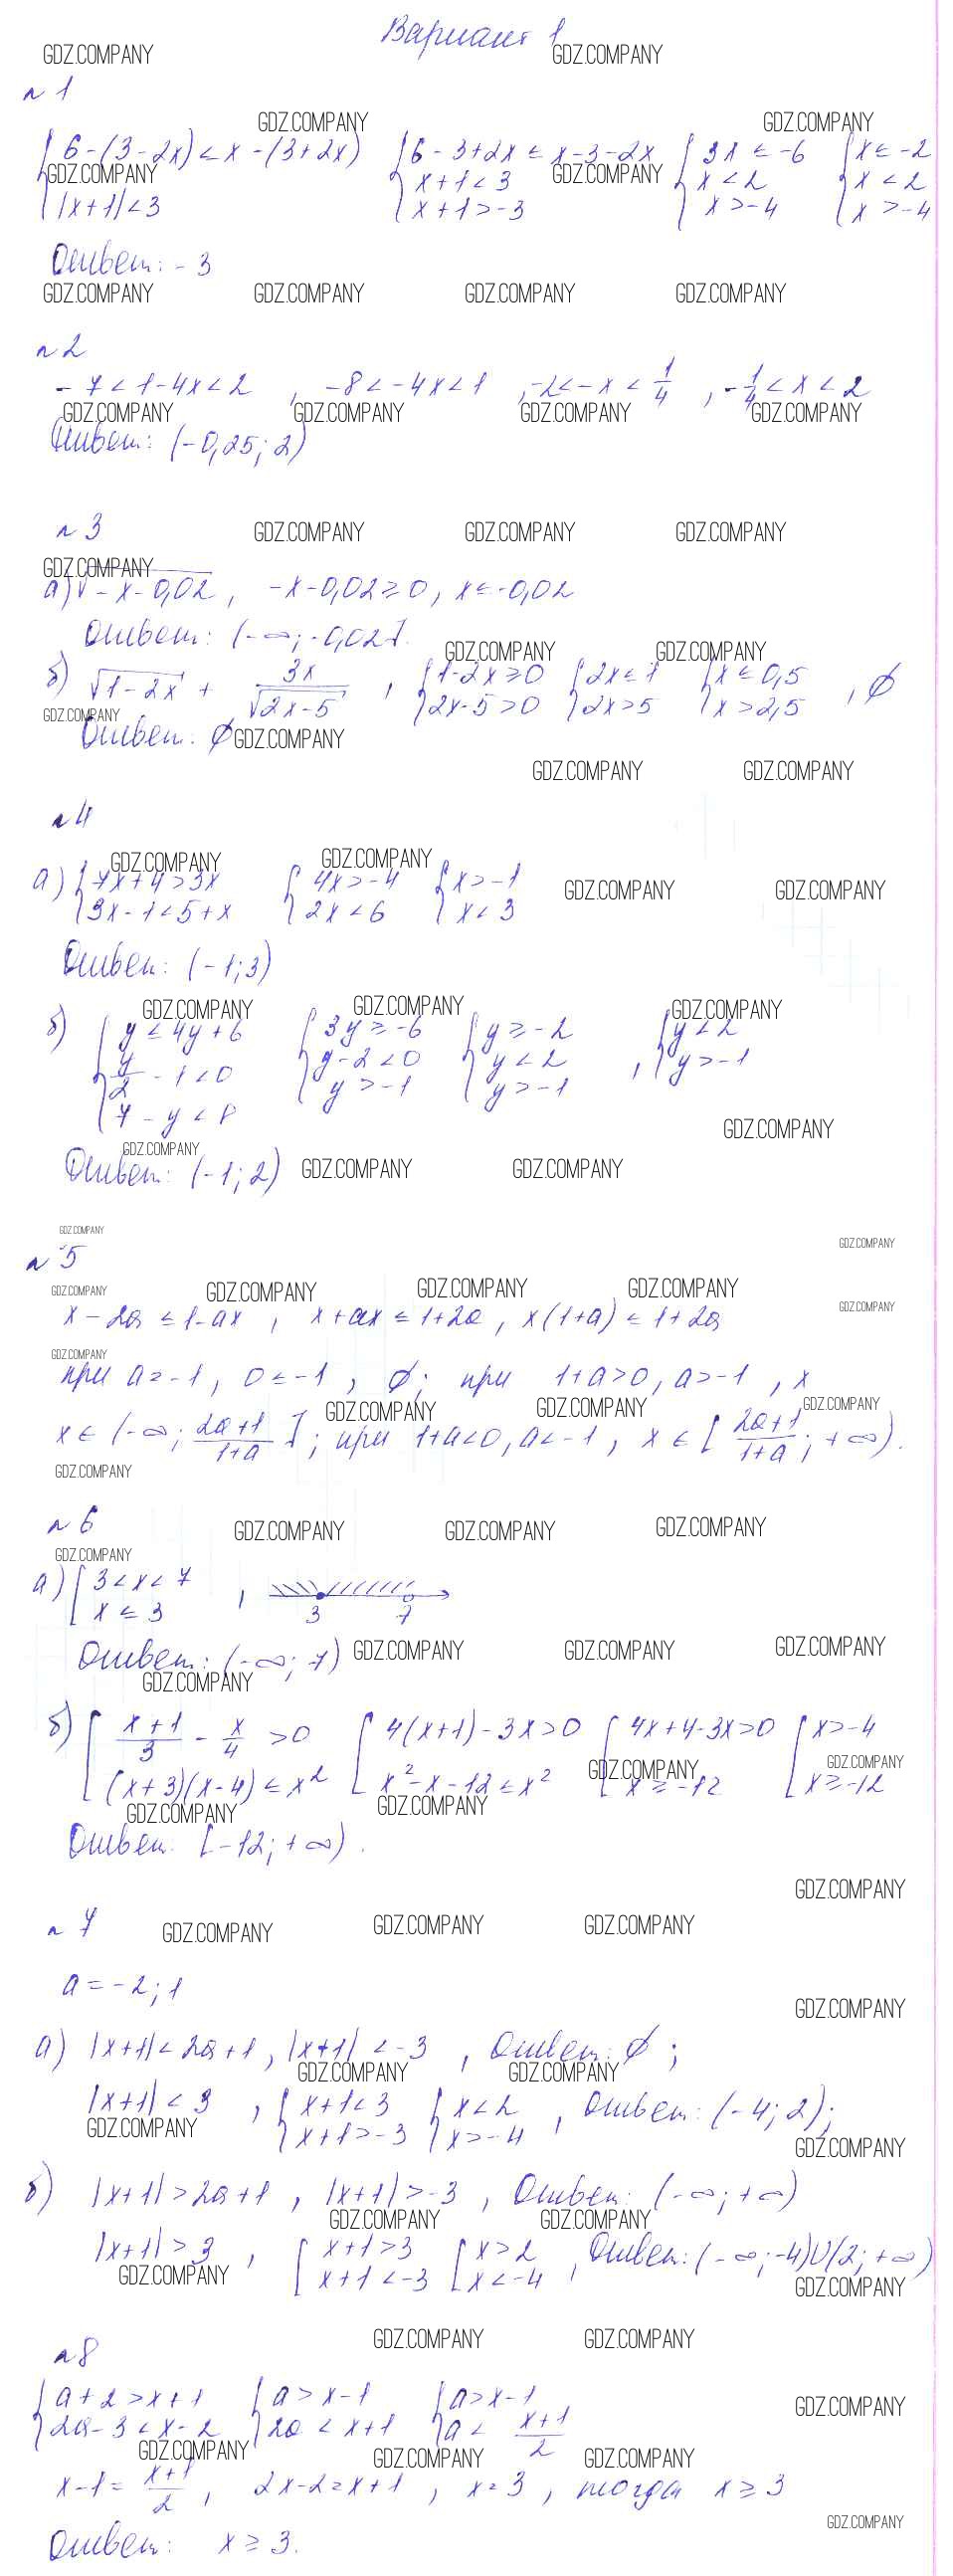 Вариант 1
GDZ.COMPANY GDZ.COMPANY
№1
GDZ.COMPANY GDZ.COMPANY
{6-(3-2x)<x-(3+2x) {6-3+2x≤x-3-2x {3x≤-6 {x≤-2
GDZ.COMPANY x+1<3 GDZ.COMPANY x<2 x<2
|x+1|<3 x+1>-3 x>-4 x>-4
Ответ: -3
GDZ.COMPANY GDZ.COMPANY GDZ.COMPANY GDZ.COMPANY
№2
-7<1-4x<2, -8<-4x<1, -2<-x<1/4, -1/4<x<2
GDZ.COMPANY GDZ.COMPANY GDZ.COMPANY GDZ.COMPANY
Ответ: (-0,25; 2)
№3 GDZ.COMPANY GDZ.COMPANY GDZ.COMPANY
GDZ.COMPANY
а) √-x-0,02, -x-0,02≥0, x≤-0,02
Ответ: (-∞; -0,02].
GDZ.COMPANY GDZ.COMPANY
б) √1-2x + 3x/√2x-5, {1-2x≥0 {2x≤1 {x≤0,5
2x-5>0 2x>5 x>2,5, ∅
GDZ.COMPANY
Ответ: ∅ GDZ.COMPANY
GDZ.COMPANY GDZ.COMPANY
№4
GDZ.COMPANY GDZ.COMPANY
а) {7x+4>3x {4x>-4 {x>-1 GDZ.COMPANY GDZ.COMPANY
3x-1<5+x 2x<6 x<3
Ответ: (-1; 3)
GDZ.COMPANY GDZ.COMPANY GDZ.COMPANY
б) {y≤4y+6 {3y≥-6 {y≥-2 {y<2
y/2-1<0 y-2<0 y<2, y>-1
7-y<8 y>-1 y>-1
GDZ.COMPANY
GDZ.COMPANY
Ответ: (-1; 2) GDZ.COMPANY GDZ.COMPANY
GDZ.COMPANY
№5 GDZ.COMPANY
GDZ.COMPANY GDZ.COMPANY GDZ.COMPANY GDZ.COMPANY
x-2a≤1-ax, x+ax≤1+2a, x(1+a)≤1+2a GDZ.COMPANY
GDZ.COMPANY
при a=-1, 0≤-1, ∅; при 1+a>0, a>-1, x
GDZ.COMPANY GDZ.COMPANY GDZ.COMPANY
x∈(-∞; 2a+1/1+a]; при 1+a<0, a<-1, x∈[2a+1/1+a; +∞).
GDZ.COMPANY
№6 GDZ.COMPANY GDZ.COMPANY GDZ.COMPANY
GDZ.COMPANY
а) [3<x<7,
x≤3 3 7
Ответ: (-∞; 7) GDZ.COMPANY GDZ.COMPANY GDZ.COMPANY
GDZ.COMPANY
б) [x+1/3 - x/4 >0 [4(x+1)-3x>0 [4x+4-3x>0 [x>-4
GDZ.COMPANY GDZ.COMPANY
(x+3)(x-4)≤x² x²-x-12≤x² x≥-12 x≥-12
GDZ.COMPANY GDZ.COMPANY
Ответ: [-12; +∞).
GDZ.COMPANY
№7 GDZ.COMPANY GDZ.COMPANY GDZ.COMPANY
a=-2; 1
GDZ.COMPANY
а) |x+1|<2a+1, |x+1|<-3, Ответ: ∅;
GDZ.COMPANY GDZ.COMPANY
|x+1|<3, {x+1<3 {x<2, Ответ: (-4; 2);
GDZ.COMPANY x+1>-3 x>-4
GDZ.COMPANY
б) |x+1|>2a+1, |x+1|>-3, Ответ: (-∞; +∞)
GDZ.COMPANY GDZ.COMPANY
|x+1|>3, [x+1>3 [x>2, Ответ: (-∞; -4)U(2; +∞)
GDZ.COMPANY x+1<-3 x<-4 GDZ.COMPANY
GDZ.COMPANY GDZ.COMPANY
№8
{a+2>x+1 {a>x-1 {a>x-1 GDZ.COMPANY
2a-3<x-2 2a<x+1 a<x+1/2
GDZ.COMPANY GDZ.COMPANY GDZ.COMPANY
x-1=x+1/2, 2x-2=x+1, x=3, тогда x≥3
GDZ.COMPANY
Ответ: x≥3.